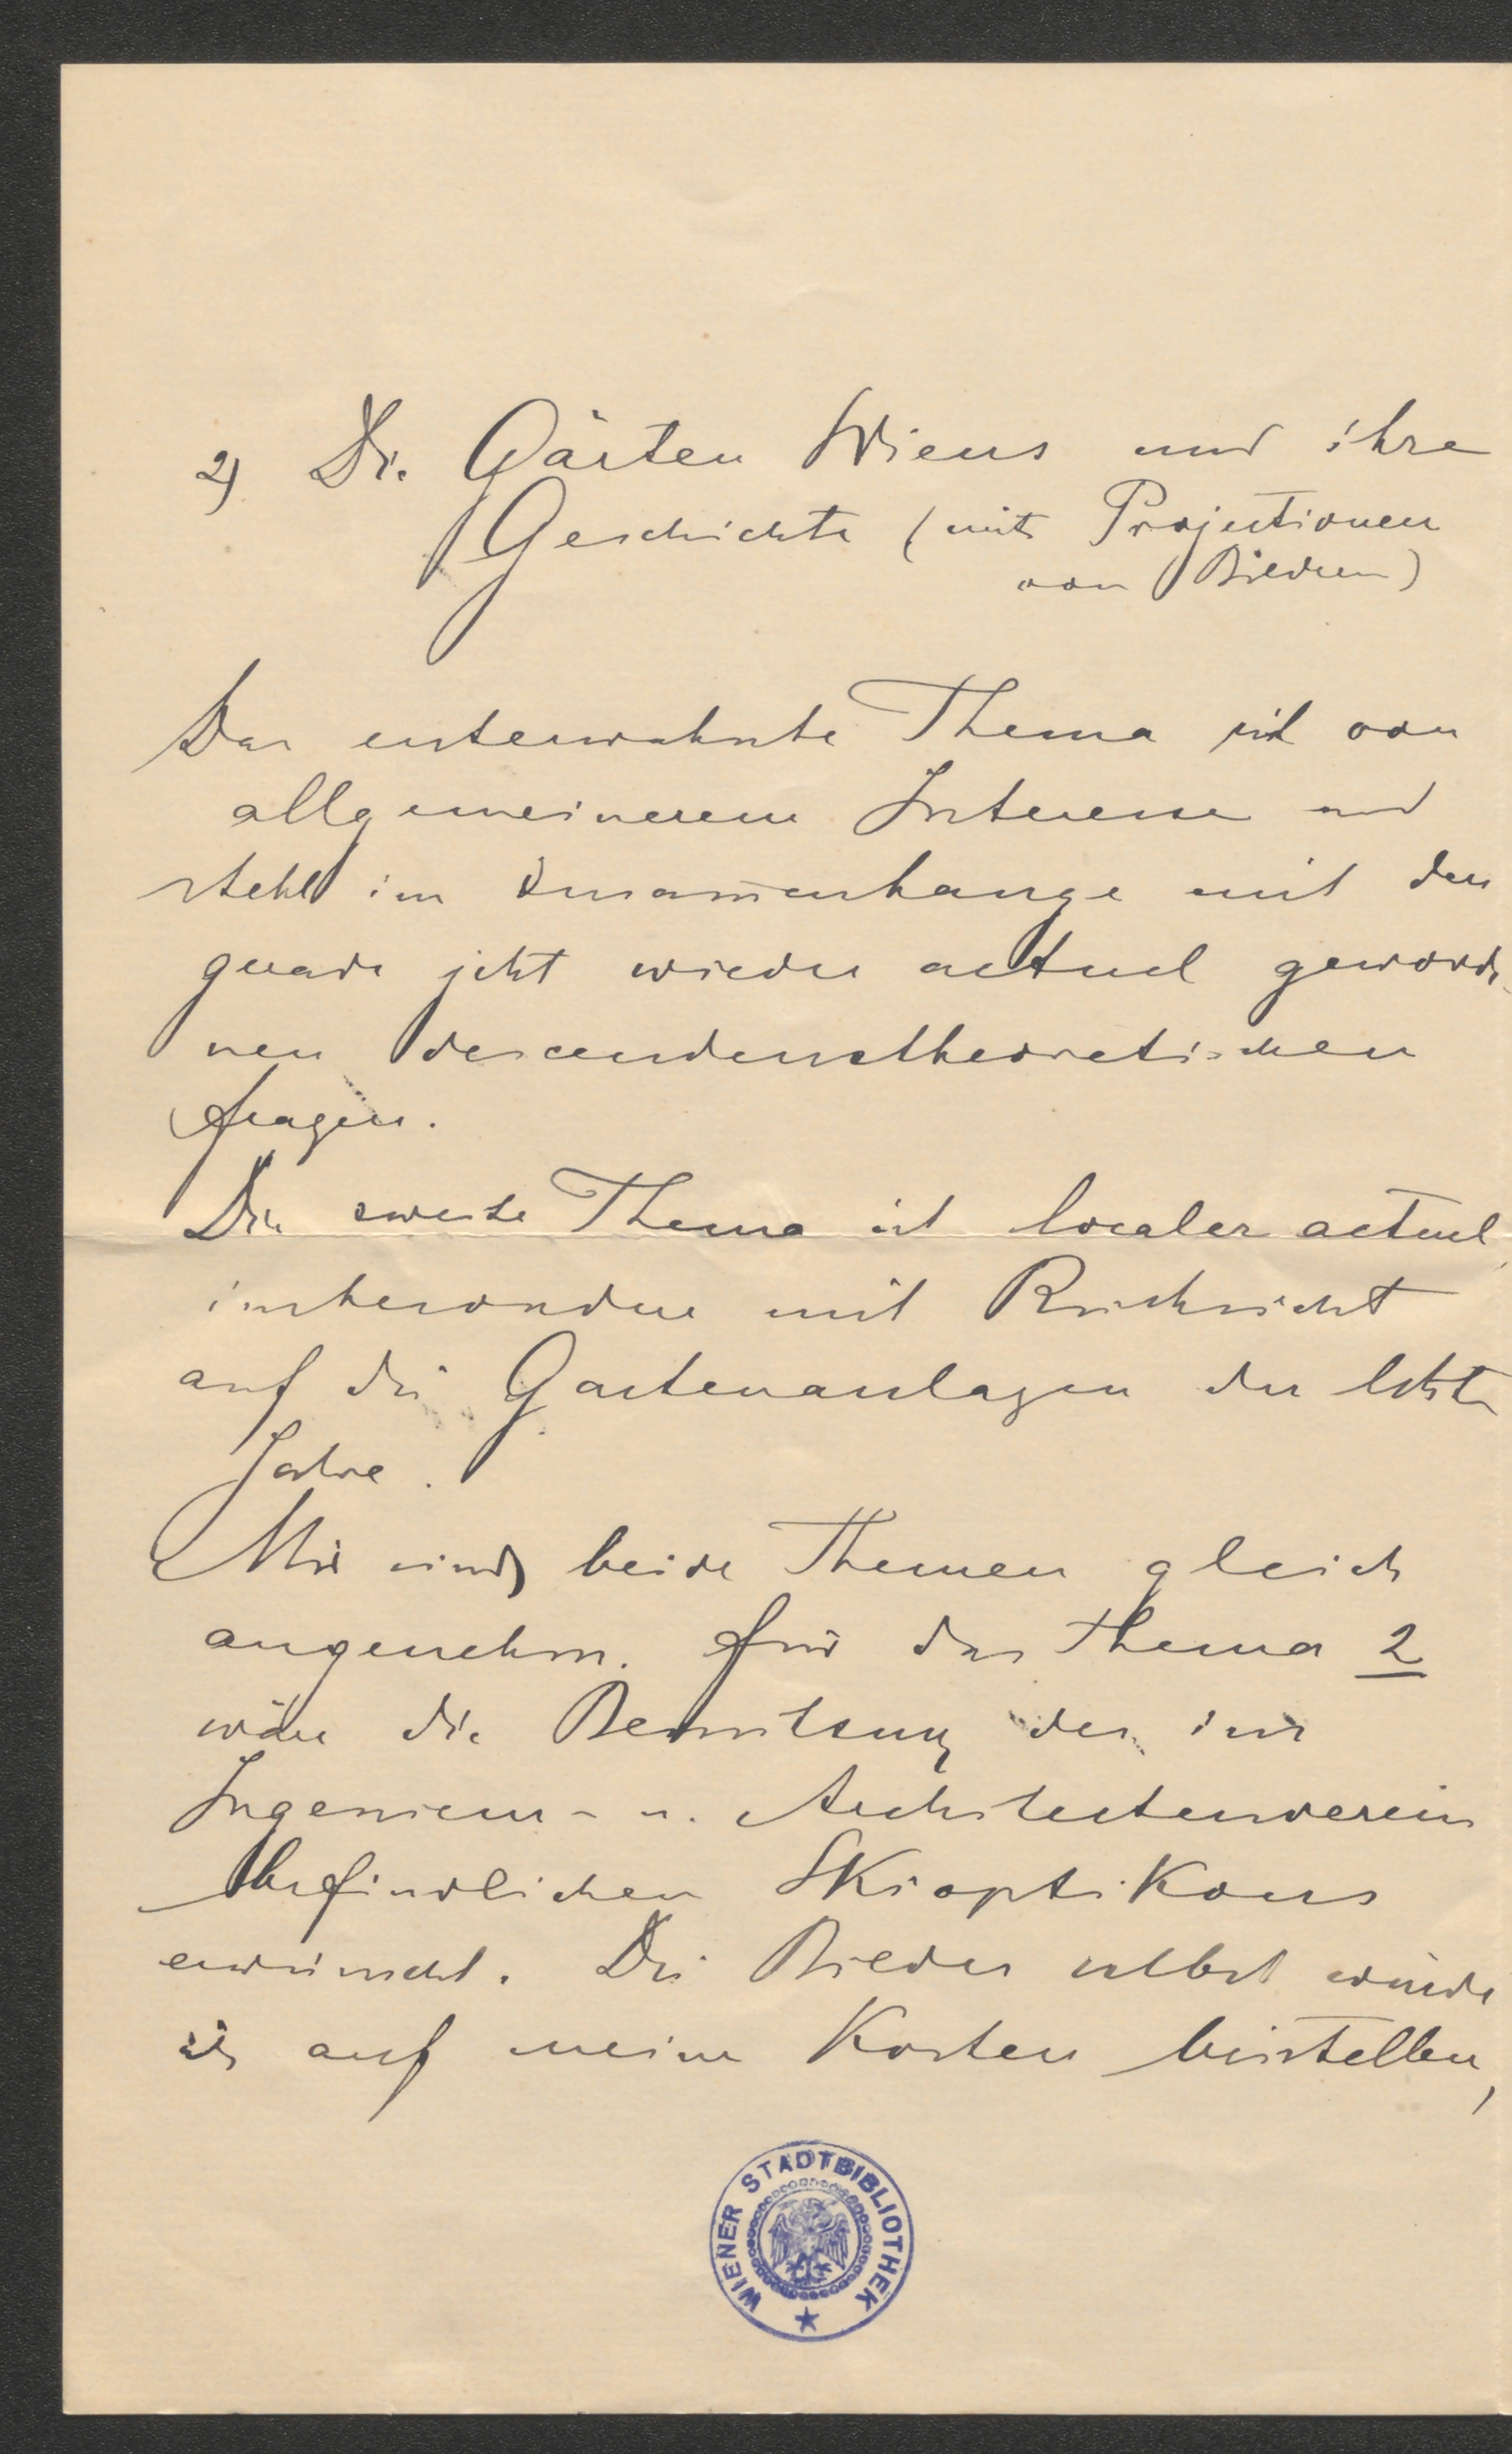 2) Die Gärten Wiens und ihre
Geschichte (mit Projectionen
von Bildern)
Das ersterwähnte Thema ist von
allgemeinerem Interesse und
steht im Zusam̅enhange mit den
gerade jetzt wieder actuel geworde-
nen descendenztheoretischen
Fragen.
Das zweite Thema ist localer actuel,
insbesondere mit Rücksicht
auf die Gartenanlagen der letzten
Jahre.
Mir sind beide Themen gleich
angenehm. Für das Thema 2
wäre die Benützung des im
Ingenieur- u. Architectenverein
befindlichen Skioptikons
erwünscht. Die Bilder selbst würde
ich auf meine Kosten beistellen,
WIENER STADTBIBLIOTHEK